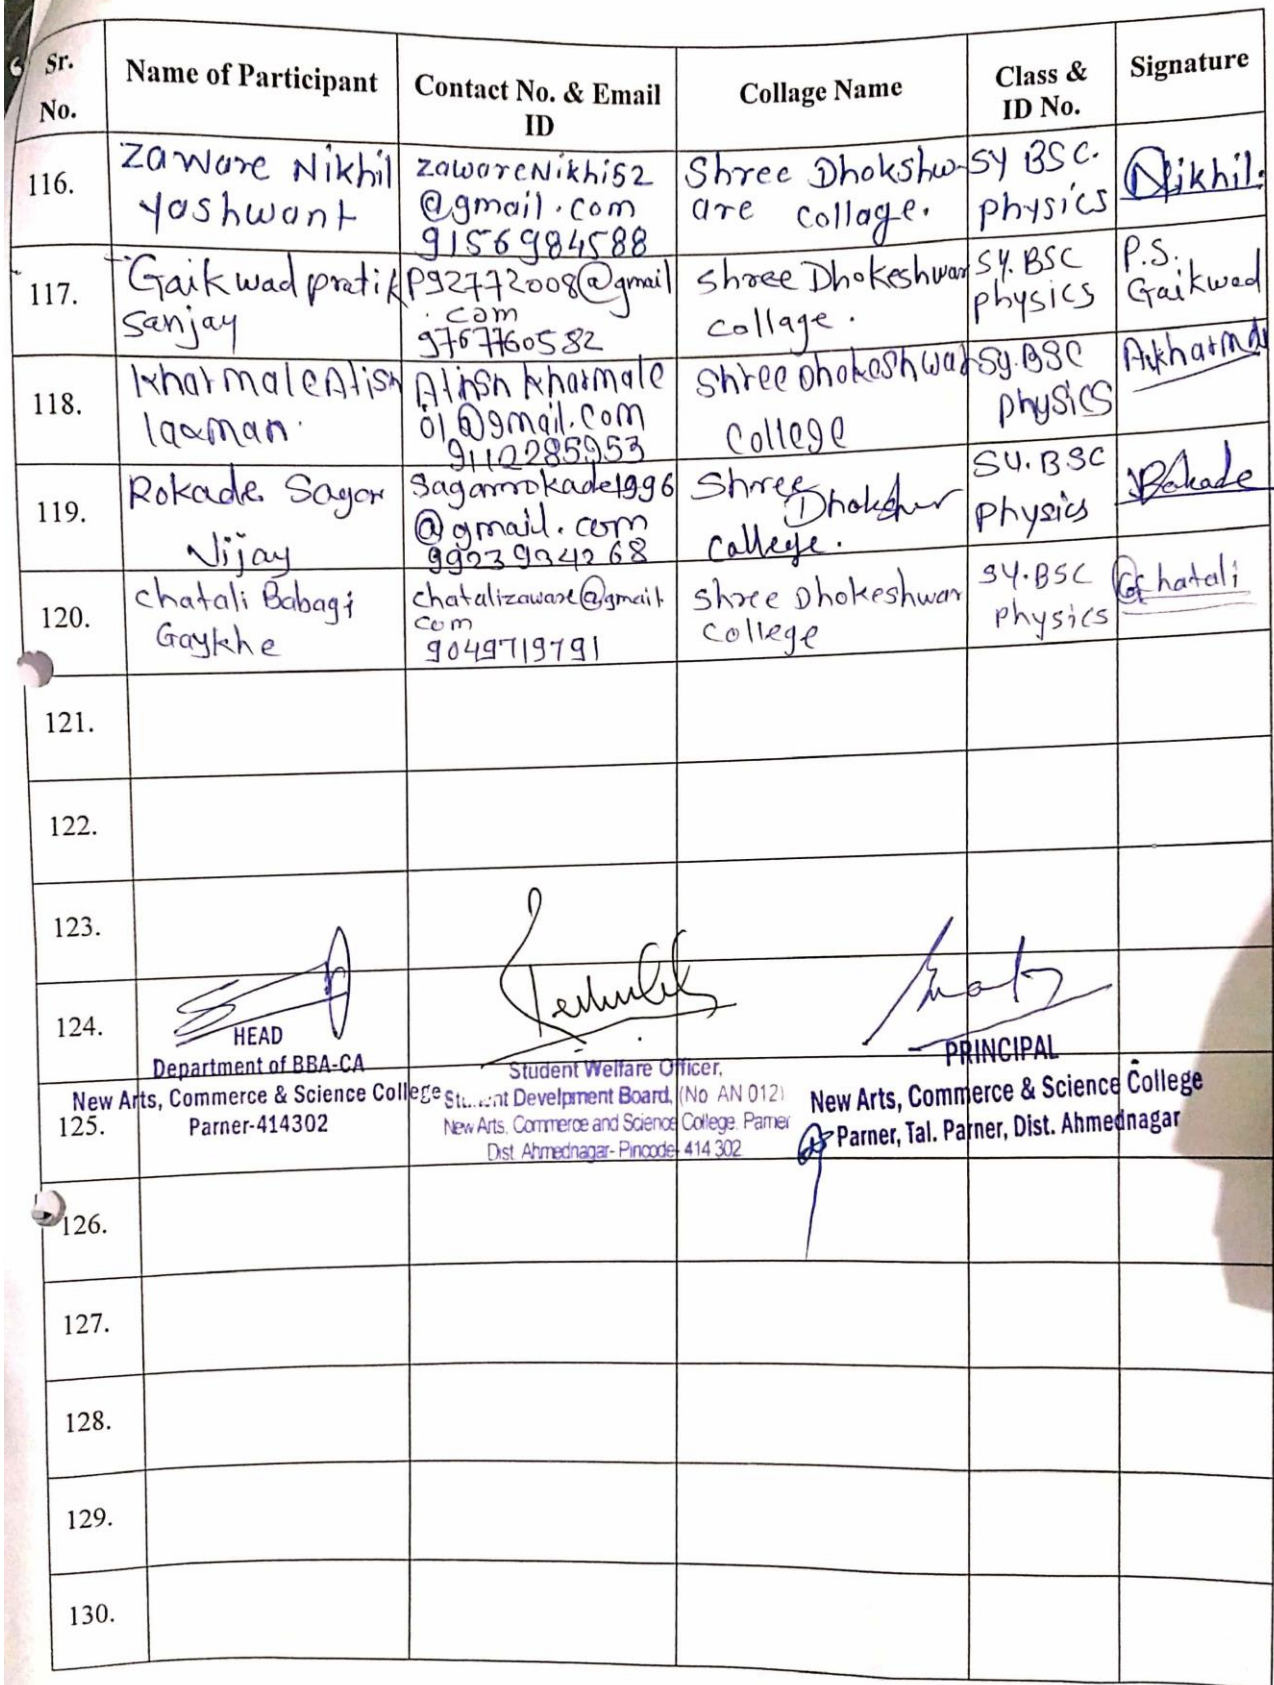 Sr. No.
Name of Participant
Contact No. & Email ID
Collage Name
Class & ID No.
Signature
116.
Zaware Nikhil
Yashwant
zawareNikhi52
@gmail.com
9156984588
Shree Dhokshw-
are collage.
SY BSC.
physics
Nikhil.
117.
Gaikwad pratik
Sanjay
P92772008@gmail
.com
9767760582
Shree Dhokeshwar
collage.
SY. BSC
physics
P.S.
Gaikwad
118.
Kharmale Atish
laxman.
Atish kharmale
01@gmail.com
9112285953
Shree Dhokeshwar
College
Sy.BSC
physics
119.
Rokade. Sagar
Vijay
Sagarrokade1996
@gmail.com
9923934268
Shree
college.
SY.BSC
physics
Rokade
120.
Chatali Babagi
Gaykhe
chatalizaware@gmail
com
9049719791
Shree Dhokeshwar
college
SY.BSC
physics
Chatali
121.
122.
123.
124.
HEAD
Department of BBA-CA
New Arts, Commerce & Science College
Parner-414302
Student Welfare Officer,
Student Develpment Board, (No AN 012)
New Arts, Commerce and Science College, Parner
Dist. Ahmednagar- Pincode- 414 302
PRINCIPAL
New Arts, Commerce & Science College
Parner, Tal. Parner, Dist. Ahmednagar
125.
126.
127.
128.
129.
130.